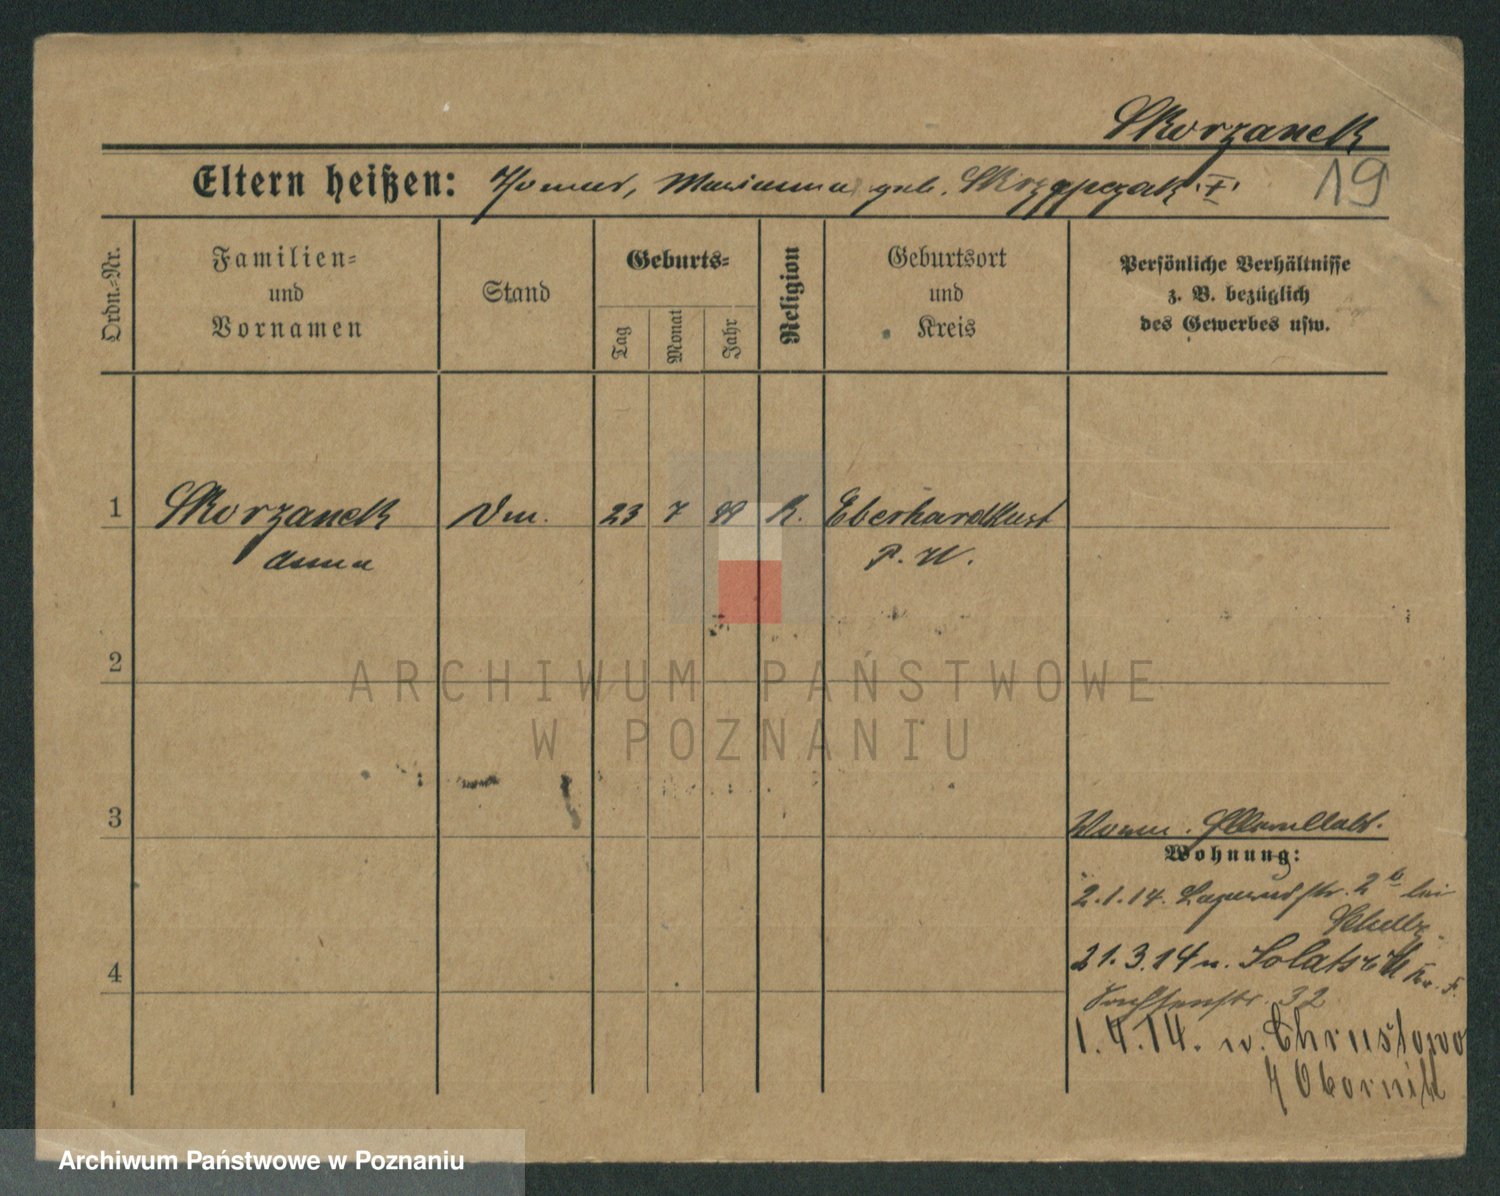 Skorzanek
Eltern heißen: Thomas, Marianna geb. †
19
Ordn.-Nr.
Familien-
und
Vornamen
Stand
Geburts-
Tag
Monat
Jahr
Religion
Geburtsort
und
Kreis
Persönliche Verhältnisse
z. B. bezüglich
des Gewerbes usw.
1 Skorzanek 23 7 K. Eberhardslust
Anna P. W.
2
3
4
Wohnung:
2.1.14. str. 2 bei
21.3.14 n. Solatsch Kr.
str. 32
1.4.14. n. Chrustowo
Obornik
ARCHIWUM PAŃSTWOWE
W POZNANIU
Archiwum Państwowe w Poznaniu